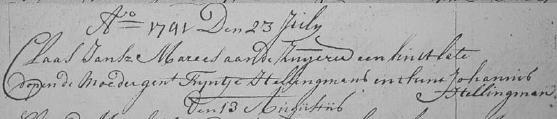 Ao 1791 Den 23 Juily
Claas Jansze Marees aan de een kint late
dopen de Moeder gent Tryntje Stellingmans en Johannis
Stellingman
Den 13 Augustus